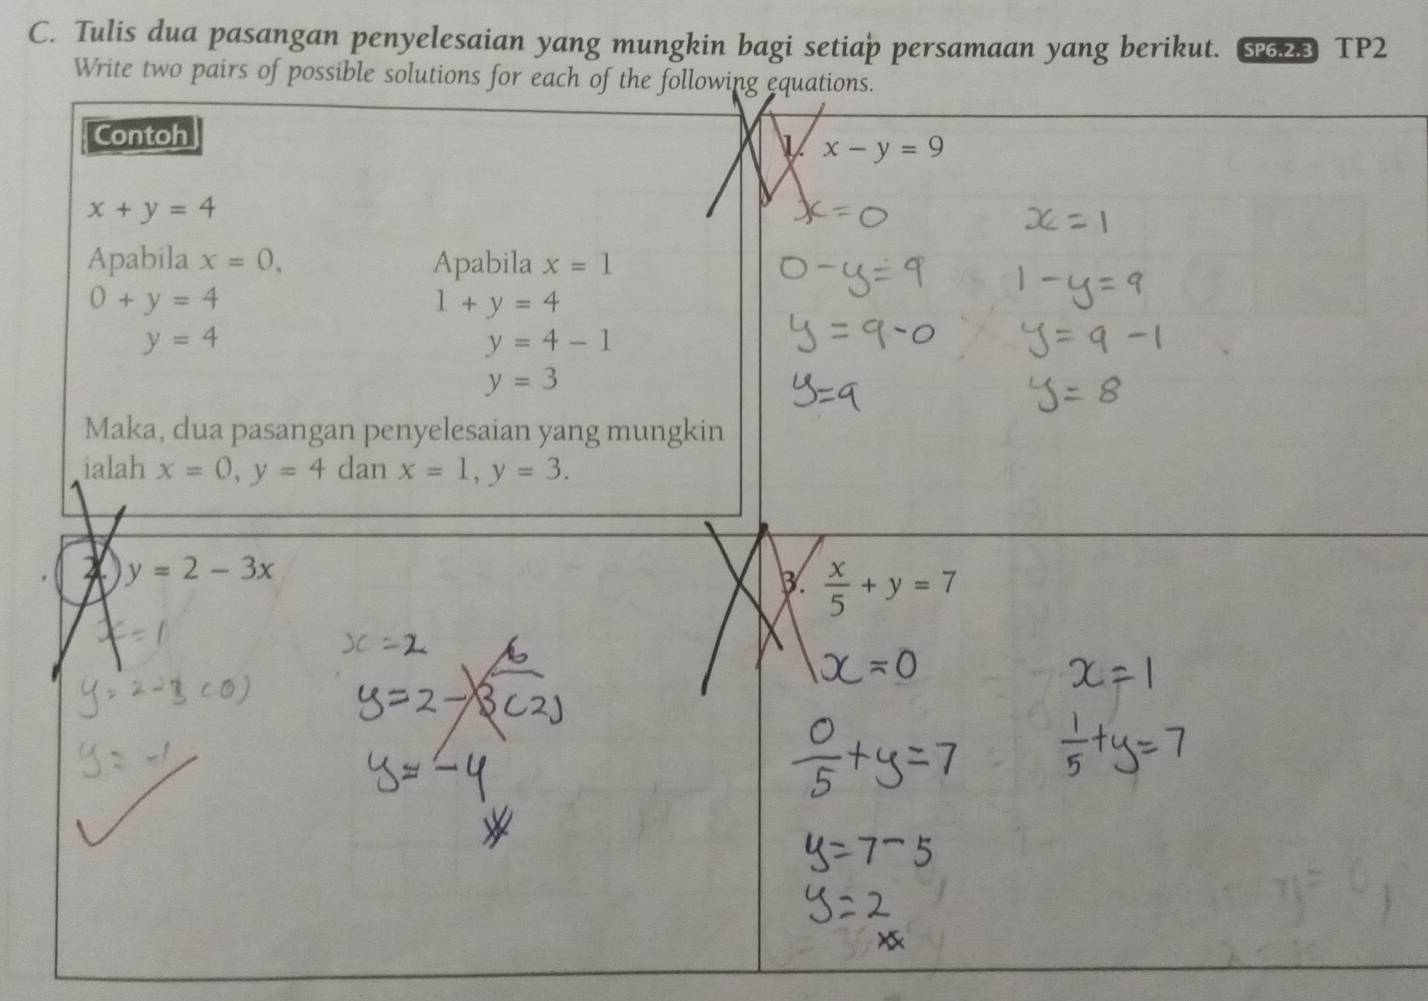 C. Tulis dua pasangan penyelesaian yang mungkin bagi setiap persamaan yang berikut. SP6.2.3 TP2
Write two pairs of possible solutions for each of the following equations.
Contoh
x + y = 4
Apabila x = 0,
0 + y = 4
y = 4
Apabila x = 1
1 + y = 4
y = 4 - 1
y = 3
Maka, dua pasangan penyelesaian yang mungkin
ialah x = 0, y = 4 dan x = 1, y = 3.
1. x - y = 9
x = 0
0 - y = 9
y = 9 - 0
y = 9
x = 1
1 - y = 9
y = 9 - 1
y = 8
2. y = 2 - 3x
x = 1
y = 2 - 3(0)
y = -1
x = 2
6
y = 2 - 3(2)
y = -4
3. x/5 + y = 7
x = 0
0/5 + y = 7
y = 7 - 5
y = 2
x = 1
1/5 + y = 7